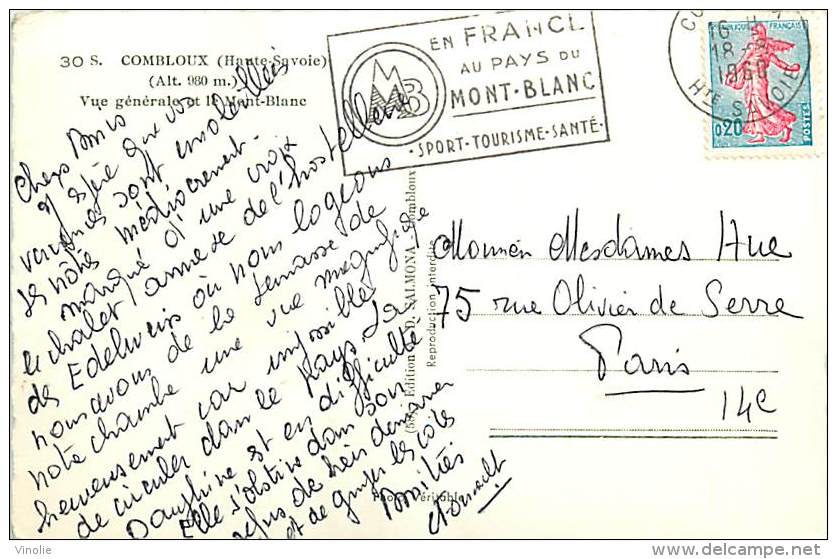 30 S. COMBLOUX (Haute-Savoie)
(Alt. 980 m.)
Vue générale et le Mont-Blanc
EN FRANCE
AU PAYS DU
MONT-BLANC
MB
·SPORT·TOURISME·SANTÉ·
18
1960
HTE SAVOIE
FRANÇAISE
0,20
POSTES
Chers Amis
J'espère que vos
vacances sont ensoleillées
les nôtres médiocrement.
marqué d'une croix
le chalet annexe de l'hostellerie
des Edelweiss où nous logeons
nous avons de la terrasse de
notre chambre une vue magnifique
heureusement car impossible
de circuler dans le pays la
Dauphine est en difficulté
Elle s'obstine dans son
refus de bien démarrer
et de grimper les côtes
Amitiés
Edition D. SALMONA - Combloux
Reproduction interdite
Photo Véritable
Mesdames Hue
75 rue Olivier de Serre
Paris
14e
Vinolie
delcampe.net